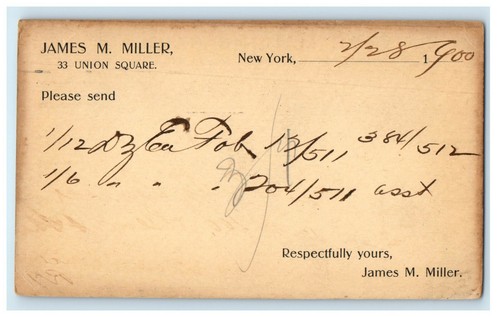 JAMES M. MILLER,
33 UNION SQUARE.
New York, 2/28 1900
Please send
1/12 Dz Ea Fob 13/511 384/512
1/6 " " " 204/511 asst
Respectfully yours,
James M. Miller.